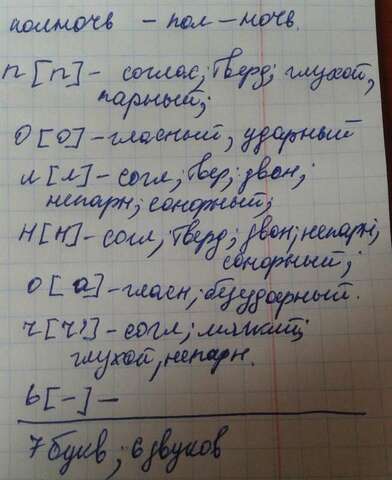 полночь – пол – ночь.
п [п] – соглас; тверд; глухой,
парный;
о [о] – гласный, ударный
л [л] – согл; твер; звон;
непарн; сонорный;
н [н] – согл; тверд; звон; непарн;
сонорный;
о [а] – гласн; безударный.
ч [ч'] – согл; мягкий;
глухой, непарн.
ь [–] –
7 букв; 6 звуков